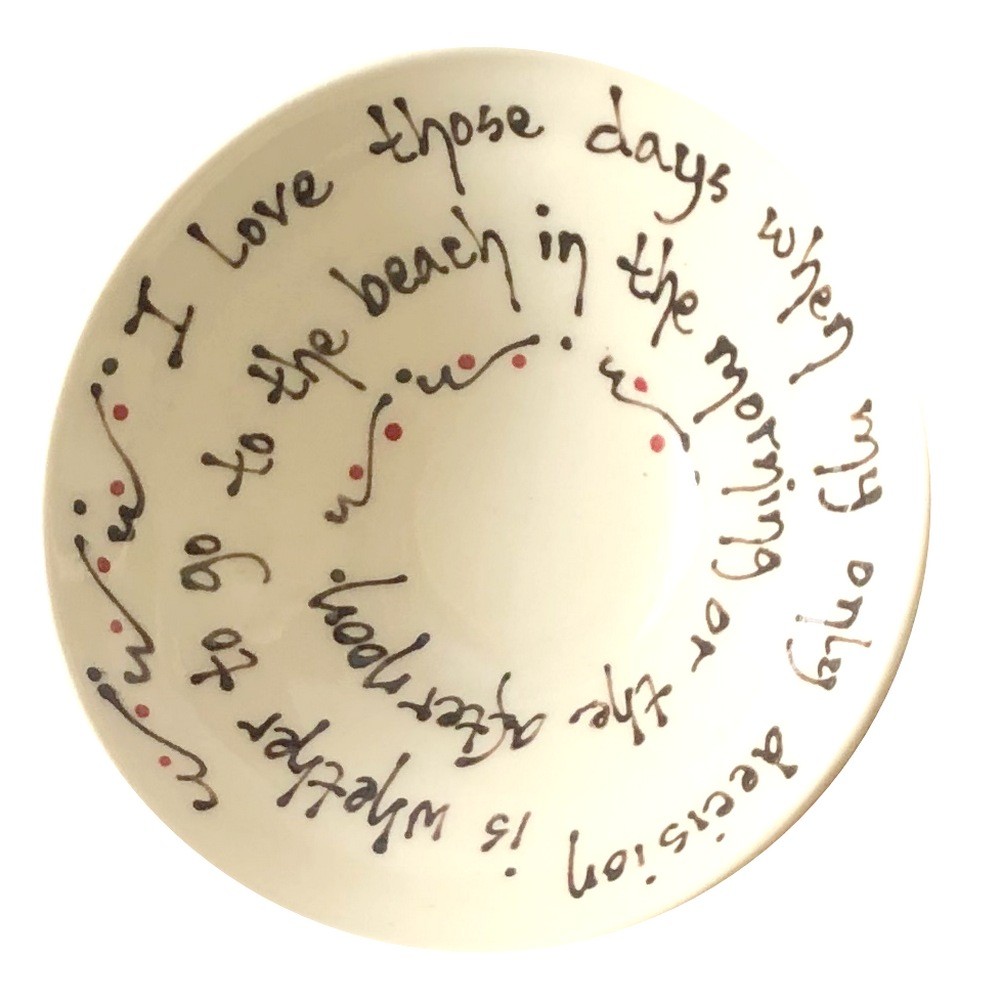 I love those days when my only decision is whether to go to the beach in the morning or the afternoon.